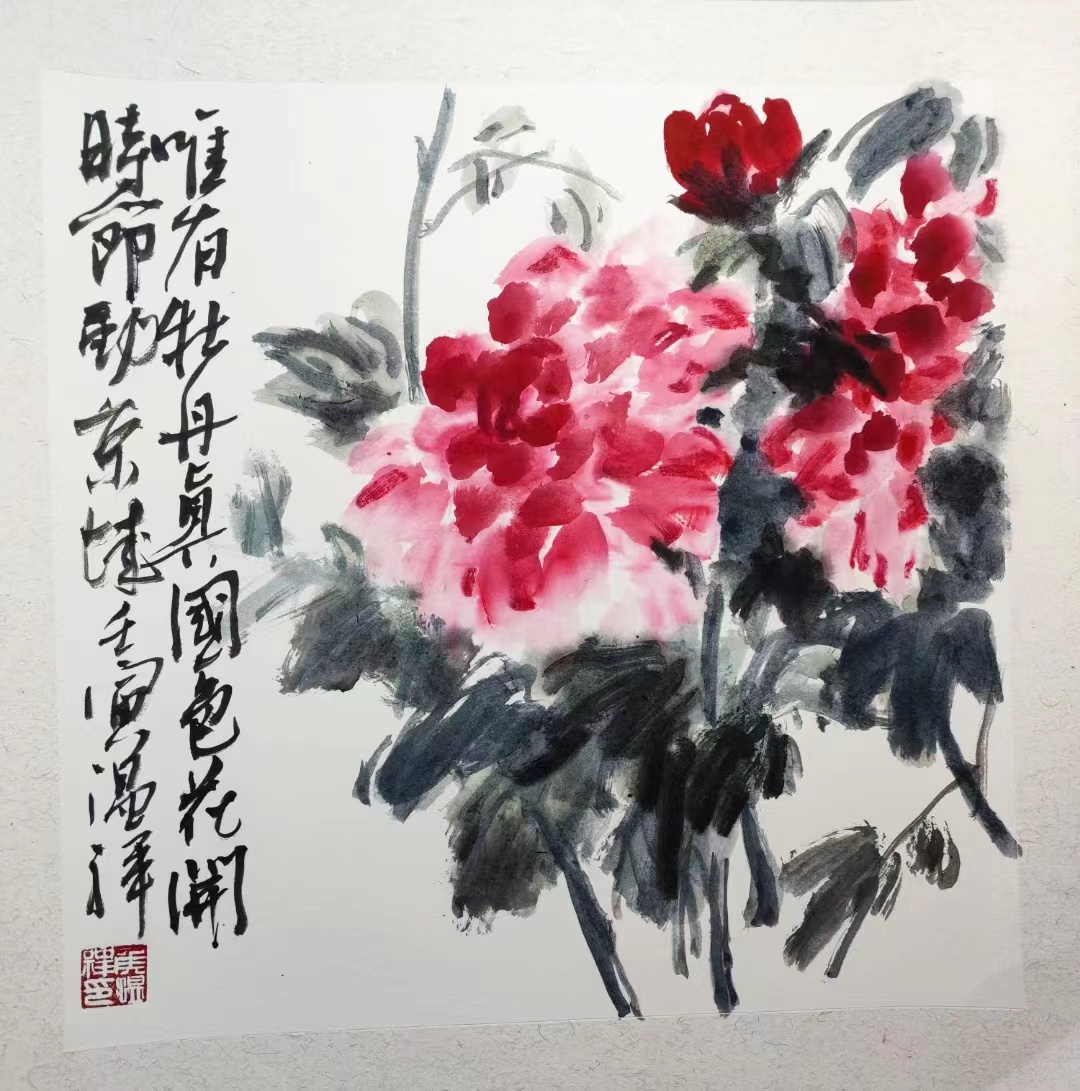 唯有牡丹真國色花開
時節動京城壬寅溫禪